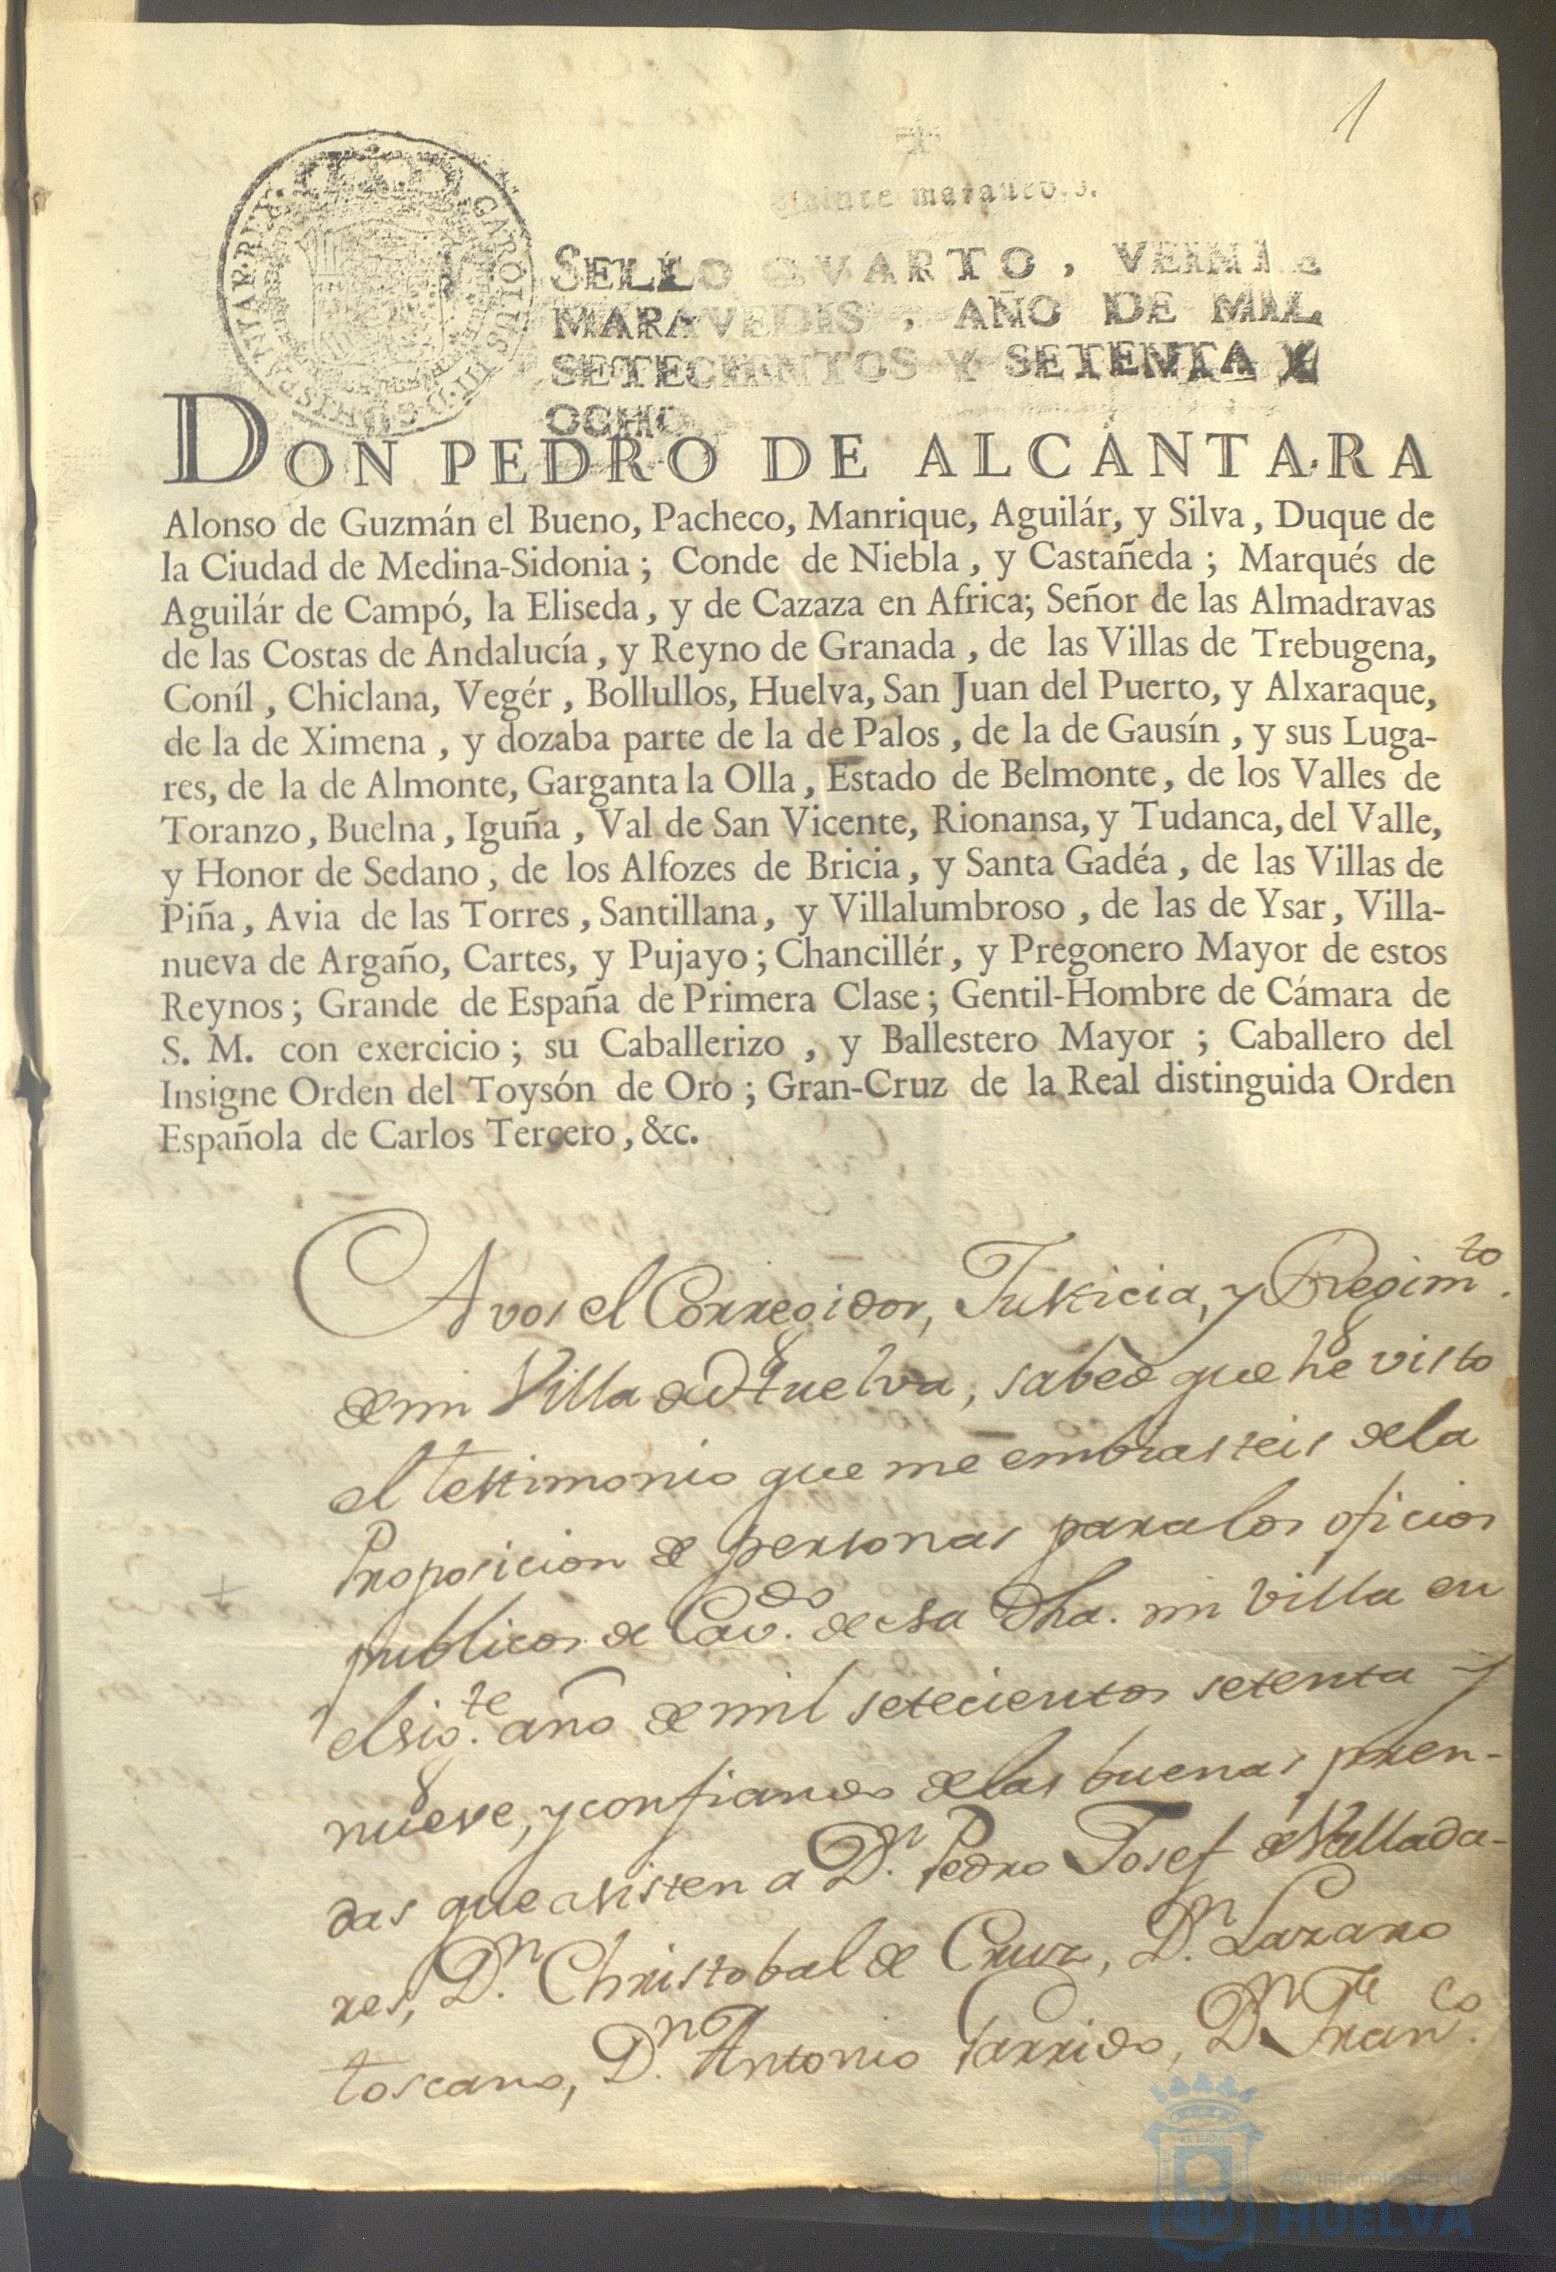 1
Veinte maravedis.
SELLO QVARTO, VEINTE
MARAVEDIS, AÑO DE MIL
SETECIENTOS Y SETENTA Y
OCHO.
CAROLUS III D.G. HISPANIAR. REX.
DON PEDRO DE ALCÁNTARA
Alonso de Guzmán el Bueno, Pacheco, Manrique, Aguilár, y Silva, Duque de
la Ciudad de Medina-Sidonia; Conde de Niebla, y Castañeda; Marqués de
Aguilár de Campó, la Eliseda, y de Cazaza en Africa; Señor de las Almadravas
de las Costas de Andalucía, y Reyno de Granada, de las Villas de Trebugena,
Coníl, Chiclana, Vegér, Bollullos, Huelva, San Juan del Puerto, y Alxaraque,
de la de Ximena, y dozaba parte de la de Palos, de la de Gausín, y sus Luga-
res, de la de Almonte, Garganta la Olla, Estado de Belmonte, de los Valles de
Toranzo, Buelna, Iguña, Val de San Vicente, Rionansa, y Tudanca, del Valle,
y Honor de Sedano, de los Alfozes de Bricia, y Santa Gadéa, de las Villas de
Piña, Avia de las Torres, Santillana, y Villalumbroso, de las de Ysar, Villa-
nueva de Argaño, Cartes, y Pujayo; Chancillér, y Pregonero Mayor de estos
Reynos; Grande de España de Primera Clase; Gentil-Hombre de Cámara de
S. M. con exercicio; su Caballerizo, y Ballestero Mayor; Caballero del
Insigne Orden del Toysón de Oro; Gran-Cruz de la Real distinguida Orden
Española de Carlos Tercero, &c.
A vos el Corregidor, Justicia, y Regim.to
de mi Villa de Huelva, sabed que he visto
el testimonio que me embiasteis de la
Proposicion de personas para los oficios
publicos de Cav.do de esa dha. mi Villa en
el sig.te año de mil setecientos setenta y
nueve, y confiando de las buenas pren-
das que asisten a D.n Pedro Josef de Vallada-
res, D.n Christobal de Cruz, D.n Lazaro
toscano, D.n Antonio Garrido, D.n Fran.co
Ayuntamiento de
HUELVA